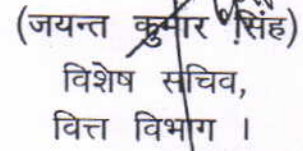 (जयन्त कुमार सिंह)
विशेष सचिव,
वित्त विभाग ।